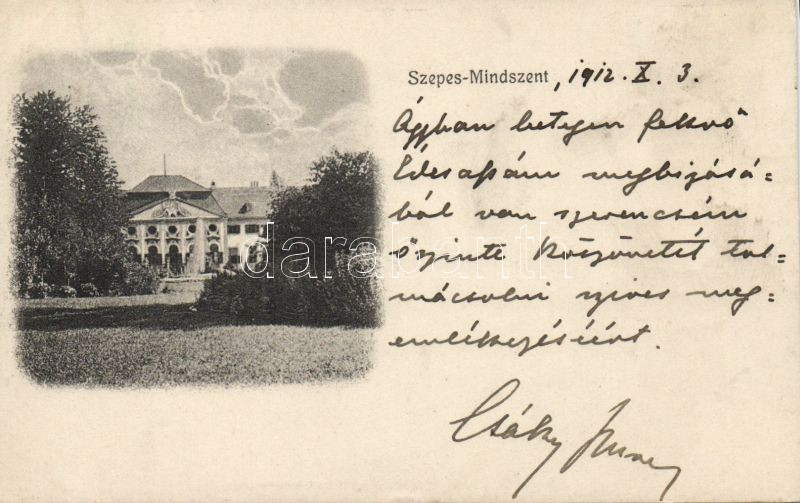 Szepes-Mindszent, 1912. X. 3.
Ágyban betegen fekvő
Édesapám megbizásá-
ból van szerencsém
őszinte köszönetét tol-
mácsolni szives meg-
emlékezéséért.
Csáky
darabanth